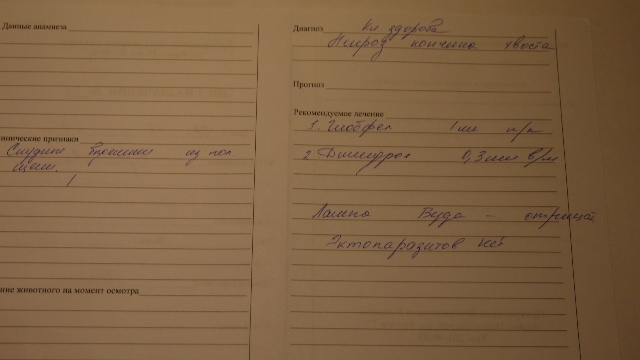 Данные анамнеза
нические признаки
из пол
ние животного на момент осмотра
Диагноз Кл. здорова
Некроз кончика хвоста
Прогноз
Рекомендуемое лечение
1. Глобфел 1 мл п/к
2 0,3 мл в/м
Лампа Вуда - отрицат
Эктопаразитов нет